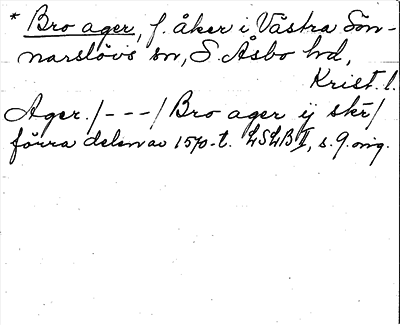 * Bro ager, f. åker i Västra Sön-
narslövs sn, S. Åsbo hd,
Krist. l.
Ager. /---/ Bro ager ij skr/
förra delen av 1570-t. LSLB II, s. 9. orig.